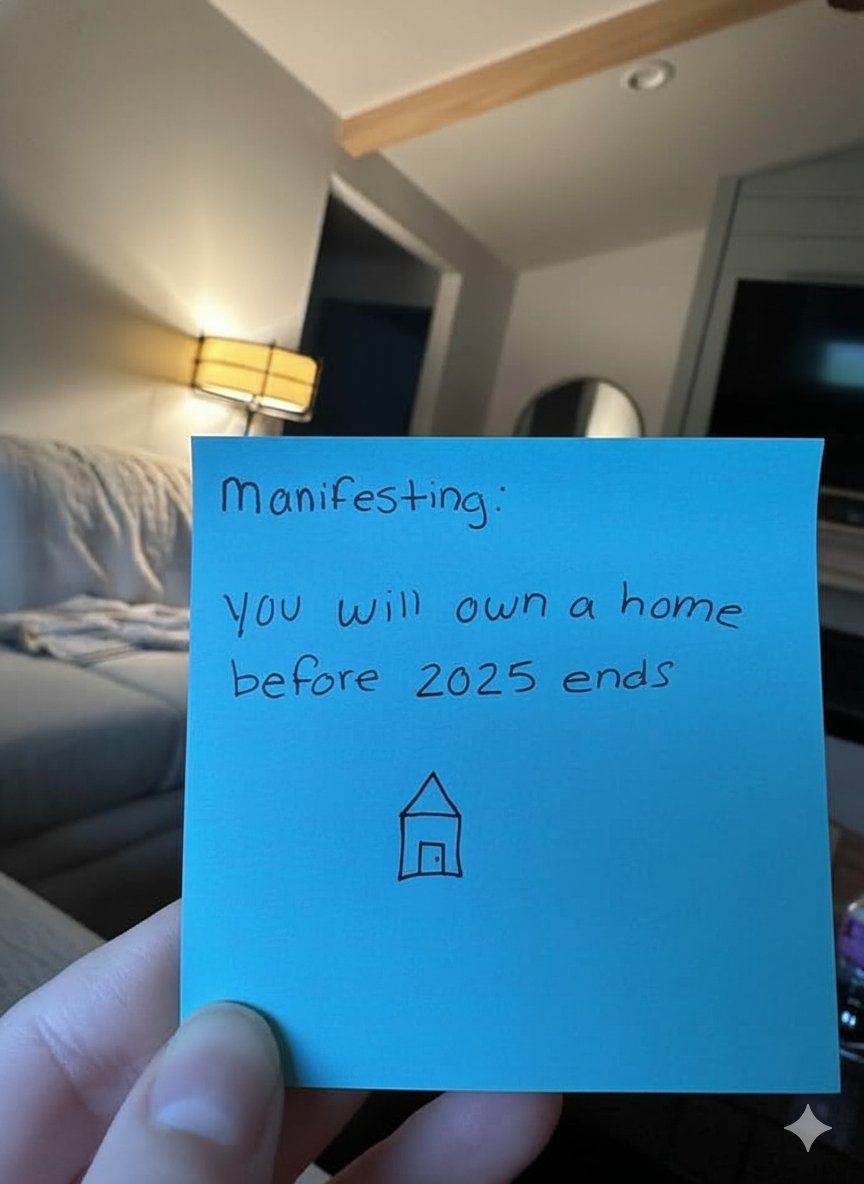 Manifesting:
you will own a home
before 2025 ends